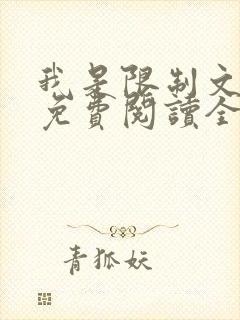 我是限制文
免費閱讀全
青狐妖